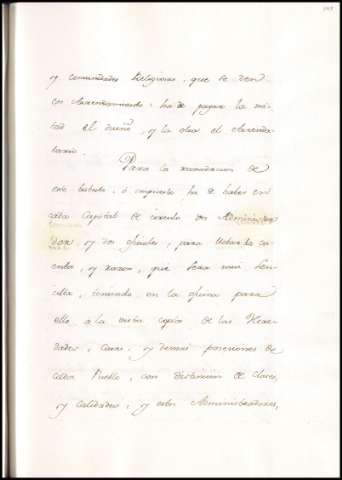 y comunidades Religiosas, que se den
en Arrendamiento. ha de pagar la mi-
tad el dueño, y la otra el Arrenda-
tario.
Para la recaudacion de
este tributo, ó impuesto ha de haber en
cada Capital de circulo un Administra-
dor y dos oficiales, para llevar la cu-
enta, y razon, que sera mui sen-
cilla, teniendo en la oficina para
ello a la vista copia de las Here-
dades, Casas y demas posesiones de
cada Pueblo, con distincion de clases,
y calidades, y estos Administradores,